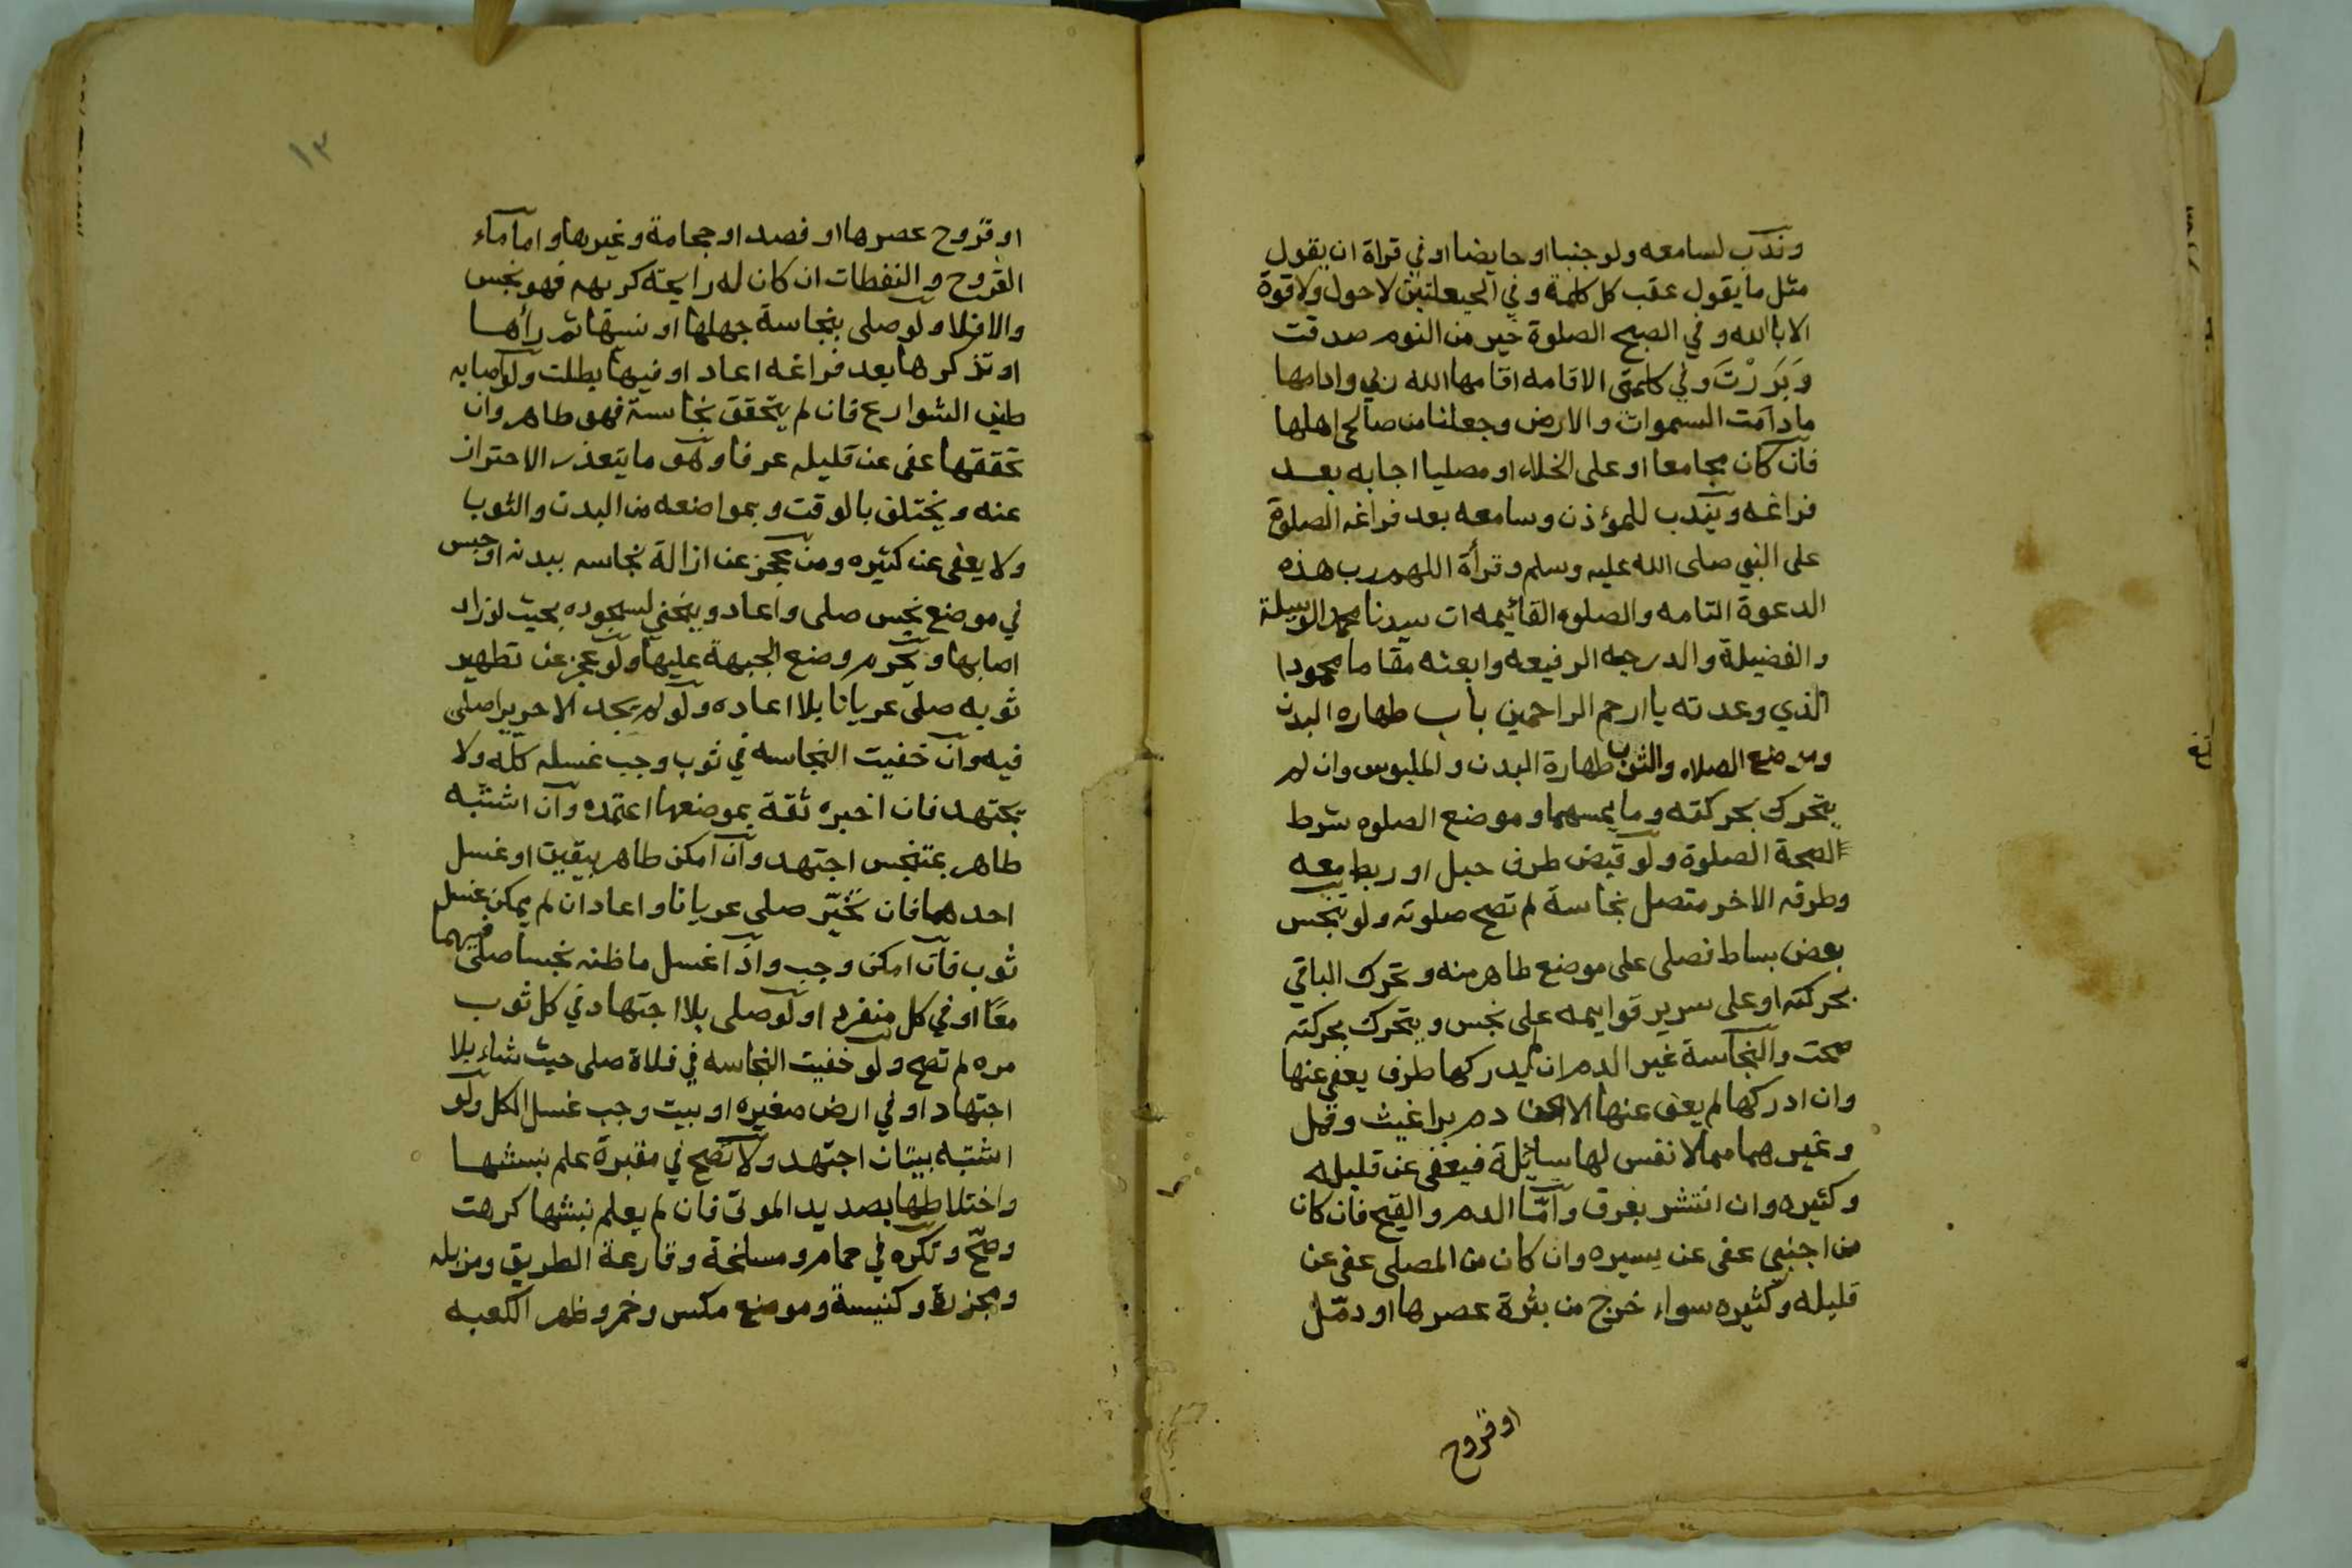 وندب لسامعه ولو جنبا او حايضا او في قراة ان يقول
مثل ما يقول عقب كل كلمة وفي الحيعلتين لا حول ولا قوة
الا بالله وفي الصبح الصلوة خير من النوم صدقت
وَبَرَرْتَ وفي كلمتي الاقامه اقامها الله ربي وادامها
ما دامت السموات والارض وجعلنا من صالحي اهلها
فان كان مجامعا او على الخلاء او مصليا اجابه بعد
فراغه ويندب للمؤذن وسامعه بعد فراغه الصلوة
على النبي صلى الله عليه وسلم وقرأة اللهم رب هذه
الدعوة التامه والصلوه القائيمه ات سيدنا محمد الوسيلة
والفضيلة والدرجه الرفيعه وابعثه مقاما محمودا
الذي وعدته يا ارحم الراحمين باب طهاره البدن
وموضع الصلاه والثوب طهارة البدن والملبوس وان لم
يتحرك بحركته وما يمسهما وموضع الصلوه شرط
لصحة الصلوة ولو قبض طرف حبل او ربط معه
وطرفه الاخر متصل بنجاسة لم تصح صلوته ولو تنجس
بعض بساط فصلى على موضع طاهر منه وتحرك الباقي
بحركته او على سرير قوايمه على نجس ويتحرك بحركته
صحت والنجاسة غير الدم ان لم يدركها طرف يعفى عنها
وان ادركها لم يعف عنها الا دم براغيث وقمل
وغيرهما مما لا نفس لها سائلة فيعفى عن قليله
وكثيره وان انتشر بعرق وامّا الدم والقيح فان كان
من اجنبي عفى عن يسيره وان كان من المصلى عفى عن
قليله وكثيره سواء خرج من بثرة عصرها او دمّل
او قروح
١٣
او قروح عصرها او فصد او حجامة وغيرها واما ماء
القروح والنفطات ان كان له رايحته كريهه فهو نجس
والا فلا ولو صلى بنجاسة جهلها او نسيها ثم رأها
او تذكرها بعد فراغه اعاد او فيها بطلت ولو اصابه
طين الشوارع فان لم يتحقق نجاسة فهو طاهر وان
تحققها عفى عن قليله عرفا وهو ما يتعذر الاحتراز
عنه ويختلف بالوقت وبمواضعه من البدن والثوب
ولا يعفى عن كثيره ومن عجز عن ازالة نجاسه ببدنه او حبس
في موضع نجس صلى واعاد وينحني لسجوده بحيث لو زاد
اصابها ويحرم وضع الجبهة عليها ولو عجز عن تطهير
ثوبه صلى عريانا بلا اعاده ولو لم يجد الا حريرا صلى
فيه وان خفيت النجاسه في ثوب وجب غسله كله ولا
يجتهد فان اخبره ثقة بموضعها اعتمده وان اشتبه
طاهر بمتنجس اجتهد وان امكن طاهر بيقين او غسل
احدهما فان تحيّر صلى عريانا واعاد ان لم يمكن غسل
ثوب فان امكن وجب واذا غسل ما ظنه نجسا صلى فيهما
معًا او في كل منفرد او لو صلى بلا اجتهاد في كل ثوب
مره لم تصح ولو خفيت النجاسه في فلاة صلى حيث شاء بلا
اجتهاد او في ارض صغيره او بيت وجب غسل الكل ولو
اشتبه بيتان اجتهد ولا تصح في مقبرة علم نبشها
واختلاطها بصديد الموتى فان لم يعلم نبشها كرهت
وصحّ وتكره في حمام ومسلخة وقارعة الطريق ومزبله
ومجزرة وكنيسة وموضع مكس وخمر وظهر الكعبه